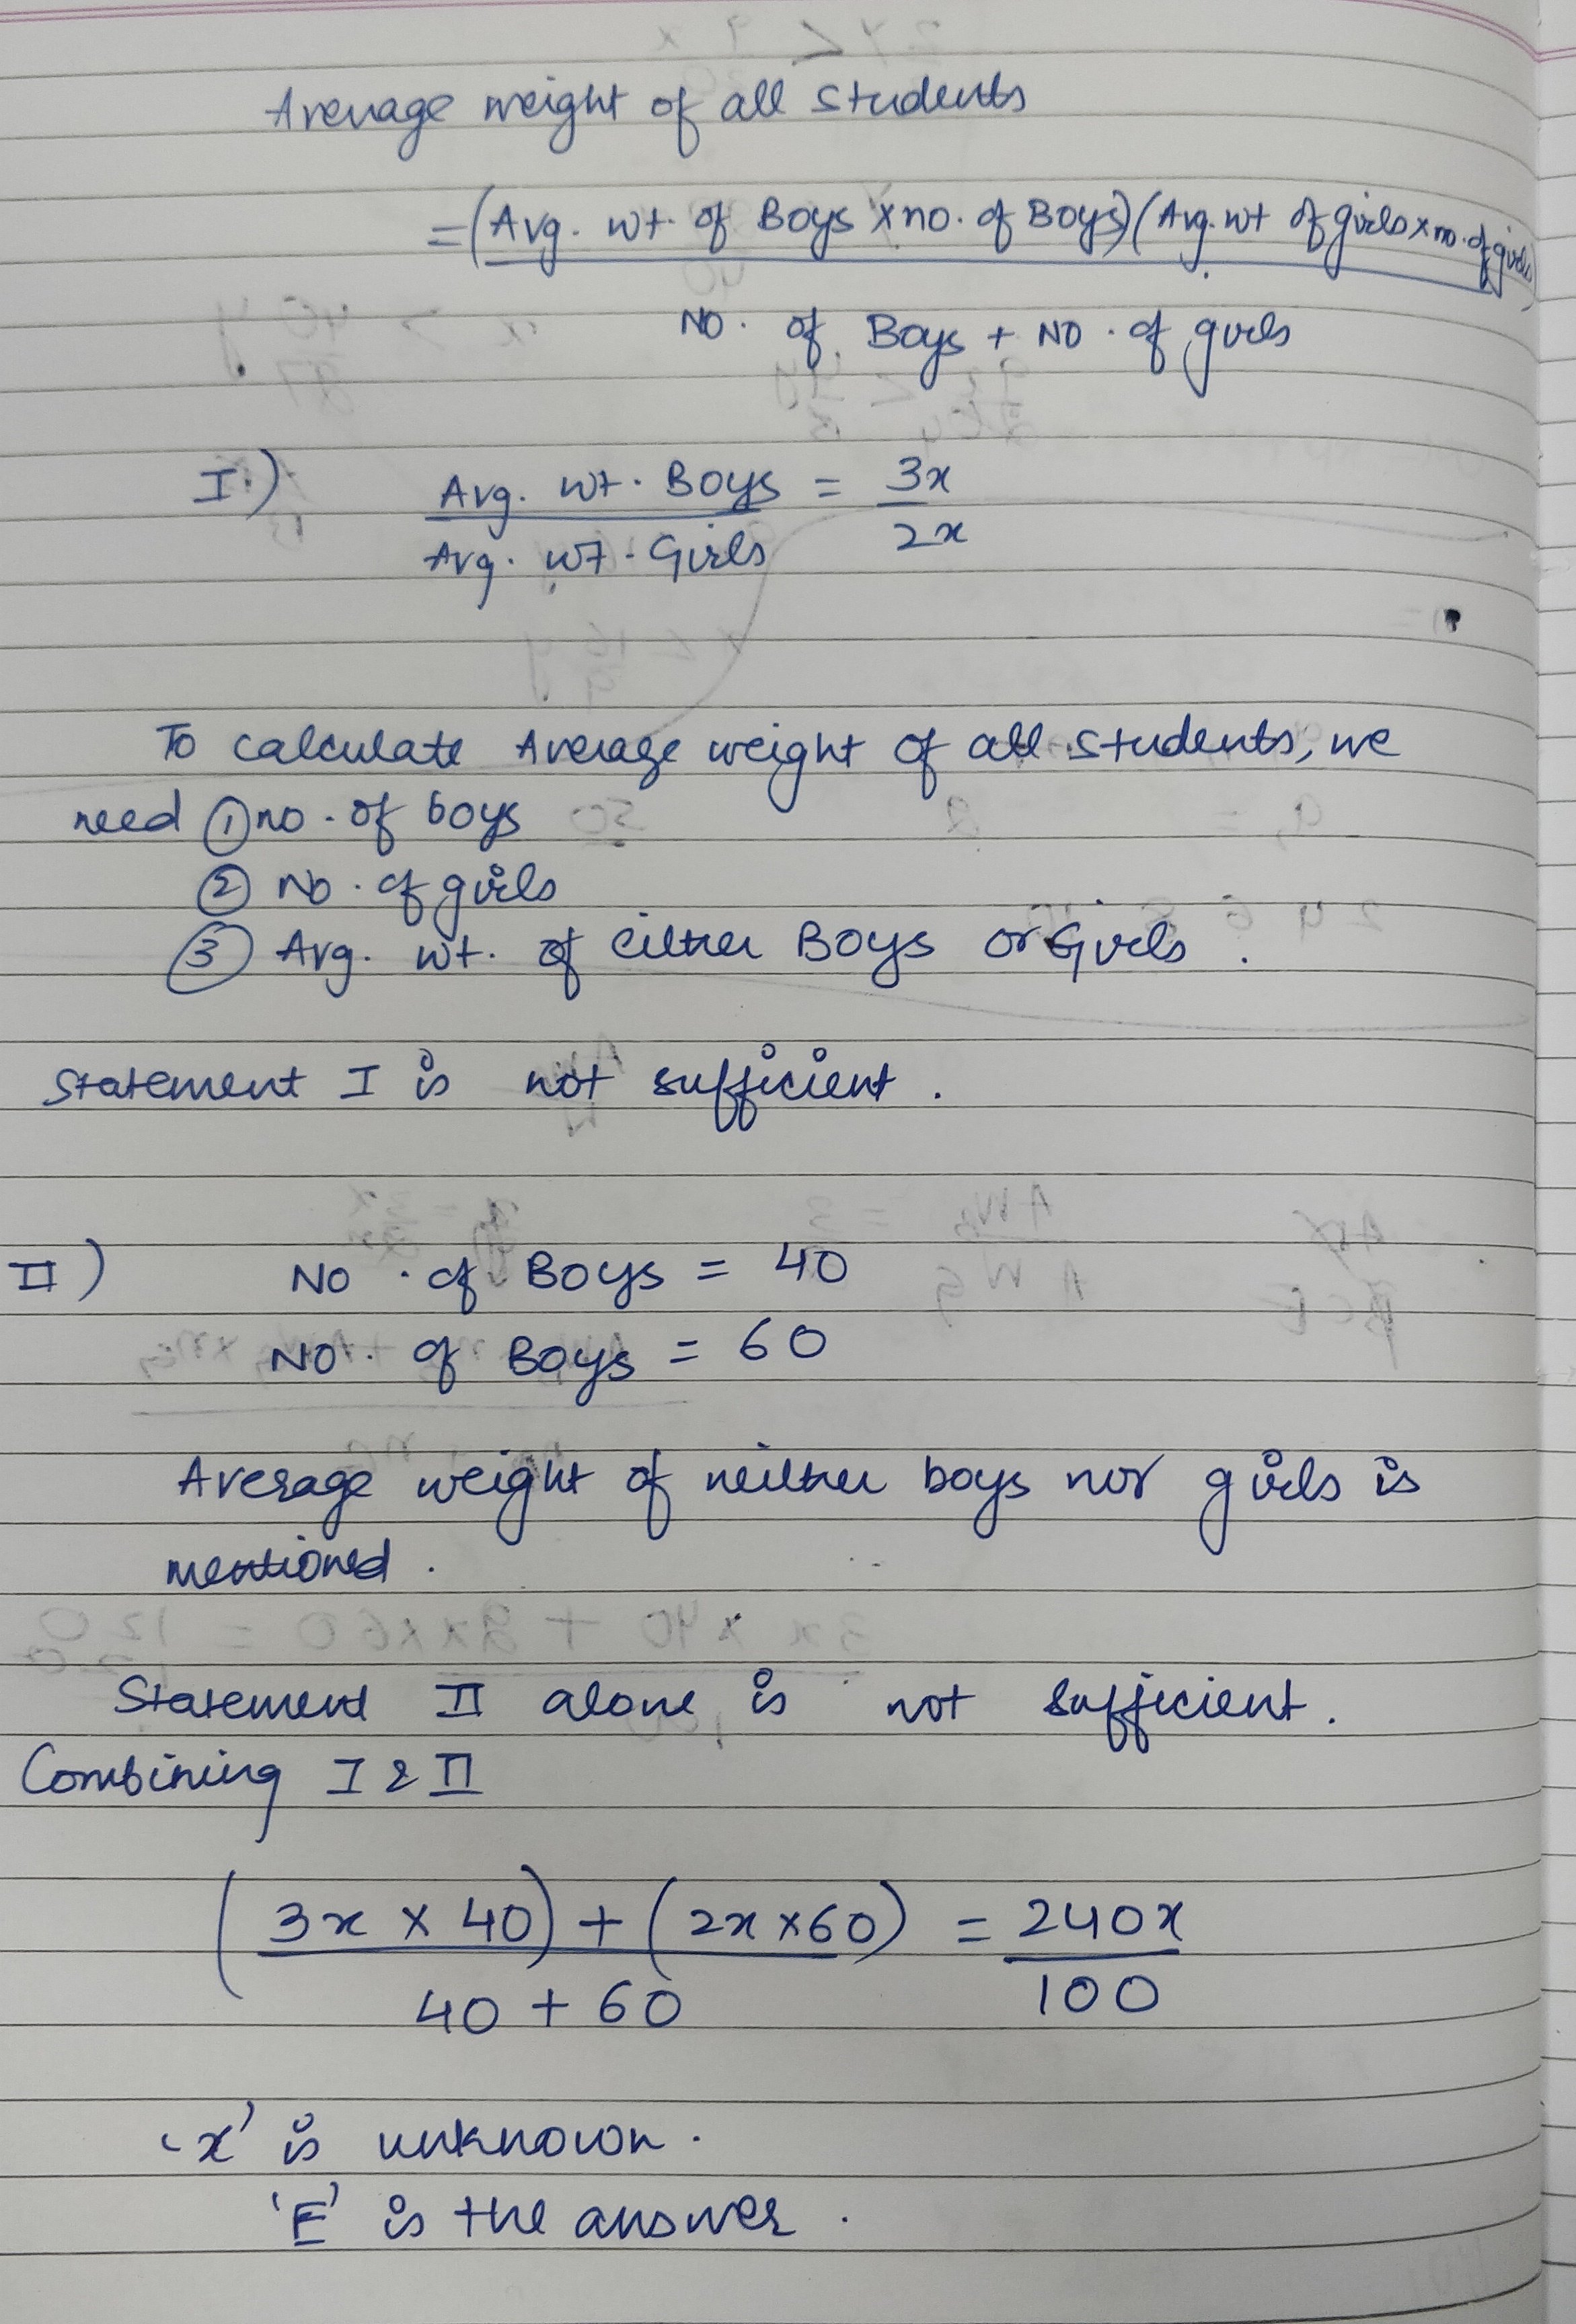 Average weight of all students
= (Avg. wt. of Boys × no. of Boys) (Avg. wt of girls × no. of girls)
NO. of Boys + NO. of girls
I.) Avg. wt. Boys = 3x
Avg. wt. Girls 2x
To calculate Average weight of all students, we
need ① no. of boys
② No. of girls
③ Avg. wt. of either Boys or Girls.
Statement I is not sufficient.
II) NO. of Boys = 40
NO. of Boys = 60
Average weight of neither boys nor girls is
mentioned.
Statement II alone is not sufficient.
Combining I & II
(3x × 40) + (2x × 60) = 240x
40 + 60 100
'x' is unknown.
'E' is the answer.